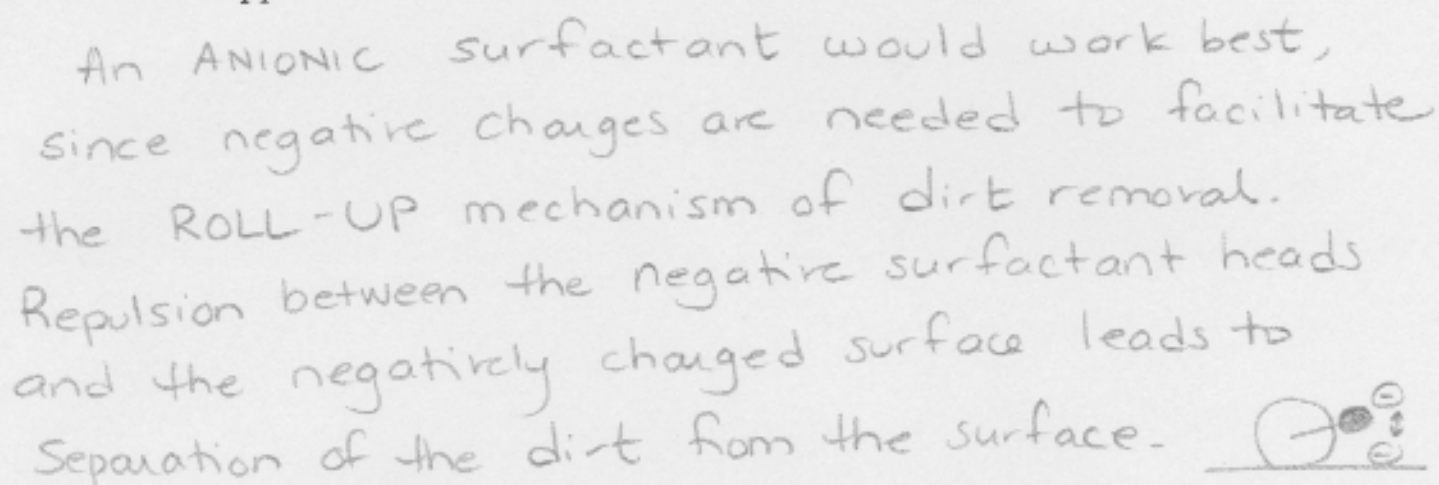 An ANIONIC surfactant would work best,
since negative charges are needed to facilitate
the ROLL-UP mechanism of dirt removal.
Repulsion between the negative surfactant heads
and the negatively charged surface leads to
Separation of the dirt from the surface.